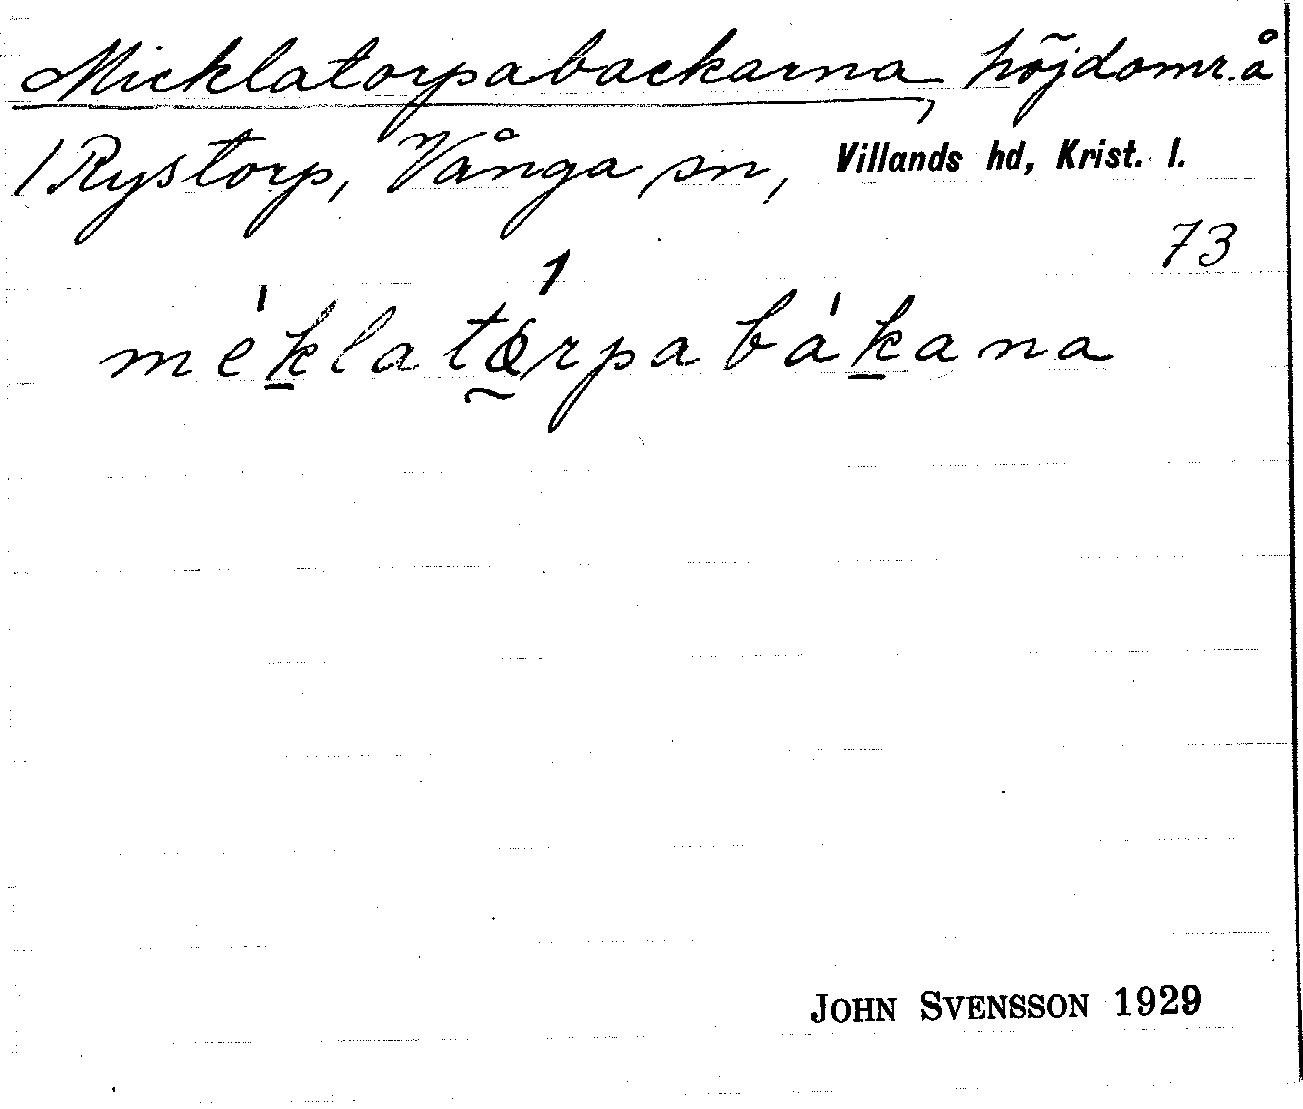 Micklatorpabackarna, höjdomr. å
/ Rystorp, Vånga sn, Villands hd, Krist. l.
73
méklatǿrpabákana
JOHN SVENSSON 1929